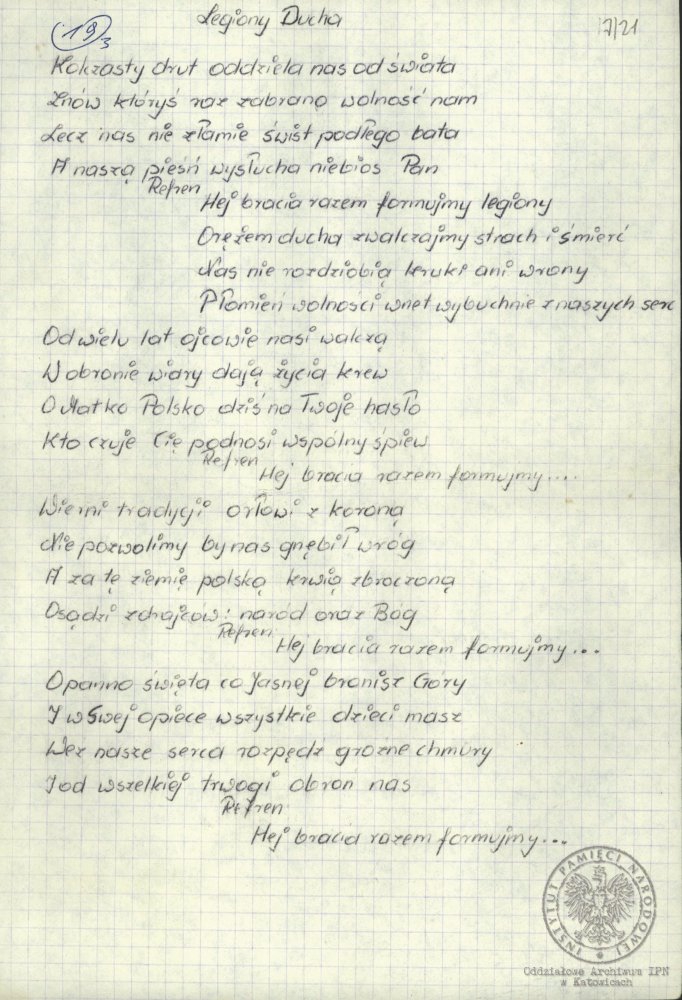 19/3
Legiony Ducha
17/21
Kolczasty drut oddziela nas od świata
Znów któryś raz zabrano wolność nam
Lecz nas nie złamie świst podłego bata
A naszą pieśń wysłucha niebios Pan
Refren
Hej bracia razem formujmy legiony
Orężem ducha zwalczajmy strach i śmierć
Nas nie rozdziobią kruki ani wrony
Płomień wolności wnet wybuchnie z naszych serc
Od wielu lat ojcowie nasi walczą
W obronie wiary dają życia krew
O Matko Polsko dziś na Twoje hasło
Kto czuje Cię podnosi wspólny śpiew
Refren
Hej bracia razem formujmy....
Wierni tradycji orłowi z koroną
Nie pozwolimy by nas gnębił wróg
A za tę ziemię polską krwią zbroczoną
Osądzi zdrajców: naród oraz Bóg
Refren
Hej bracia razem formujmy...
O panno święta co Jasnej bronisz Góry
I w Swej opiece wszystkie dzieci masz
Weź nasze serca rozpędź groźne chmury
I od wszelkiej trwogi obroń nas
Refren
Hej bracia razem formujmy...
INSTYTUT PAMIĘCI NARODOWEJ
Oddziałowe Archiwum IPN
w Katowicach